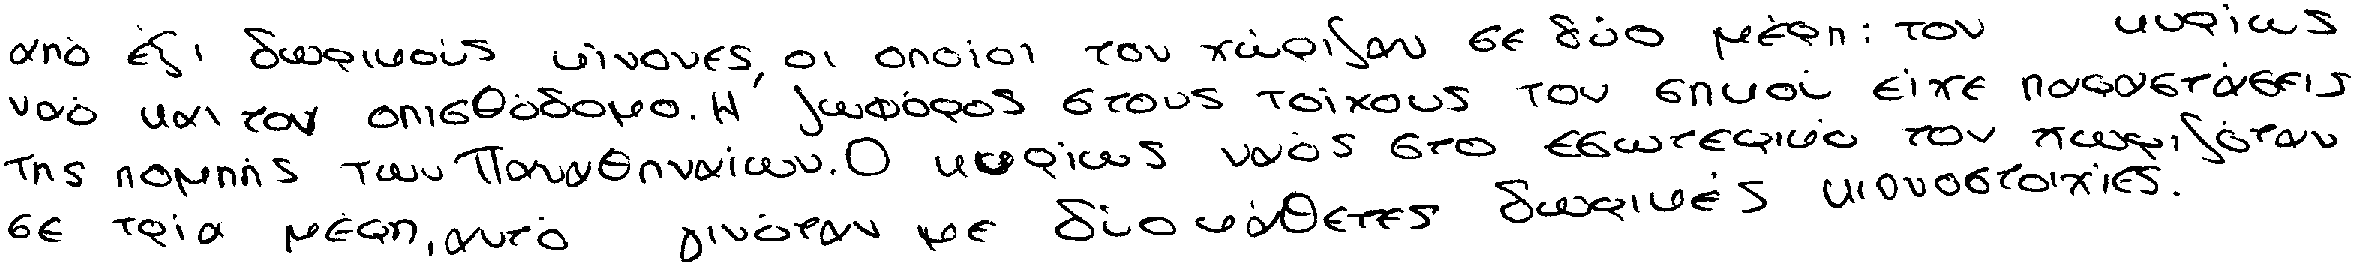 από έξι δωρικούς κίονονες, οι οποίοι τον χώριζαν σε δύο μέρη: τον κυρίως
ναό και τον οπισθόδομο. Η ζωφόρος στους τοίχους του σηκού είχε παραστάσεις
της πομπής των Παναθηναίων. Ο κυρίως ναός στο εσωτερικό του χωριζόταν
σε τρία μέρη, αυτό γινόταν με δύο κάθετες δωρικές κιονοστοιχίες.